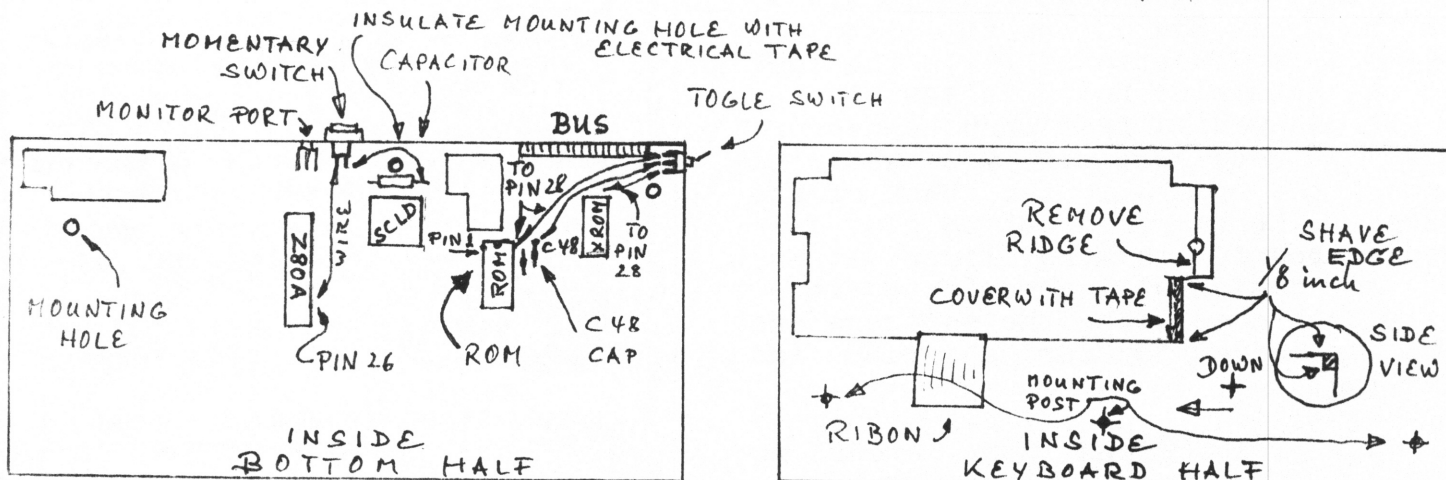 INSULATE MOUNTING HOLE WITH
ELECTRICAL TAPE
MOMENTARY
SWITCH
CAPACITOR
MONITOR PORT
BUS
TOGLE SWITCH
TO
PIN 28
WIRE
SCLD
Z80A
PIN 1
ROM
C48
XROM
TO
PIN
28
MOUNTING
HOLE
PIN 26
ROM
C 48
CAP
INSIDE
BOTTOM HALF
REMOVE
RIDGE
SHAVE
EDGE
1/8 inch
COVER WITH TAPE
SIDE
VIEW
DOWN
MOUNTING
POST
RIBON
INSIDE
KEYBOARD HALF